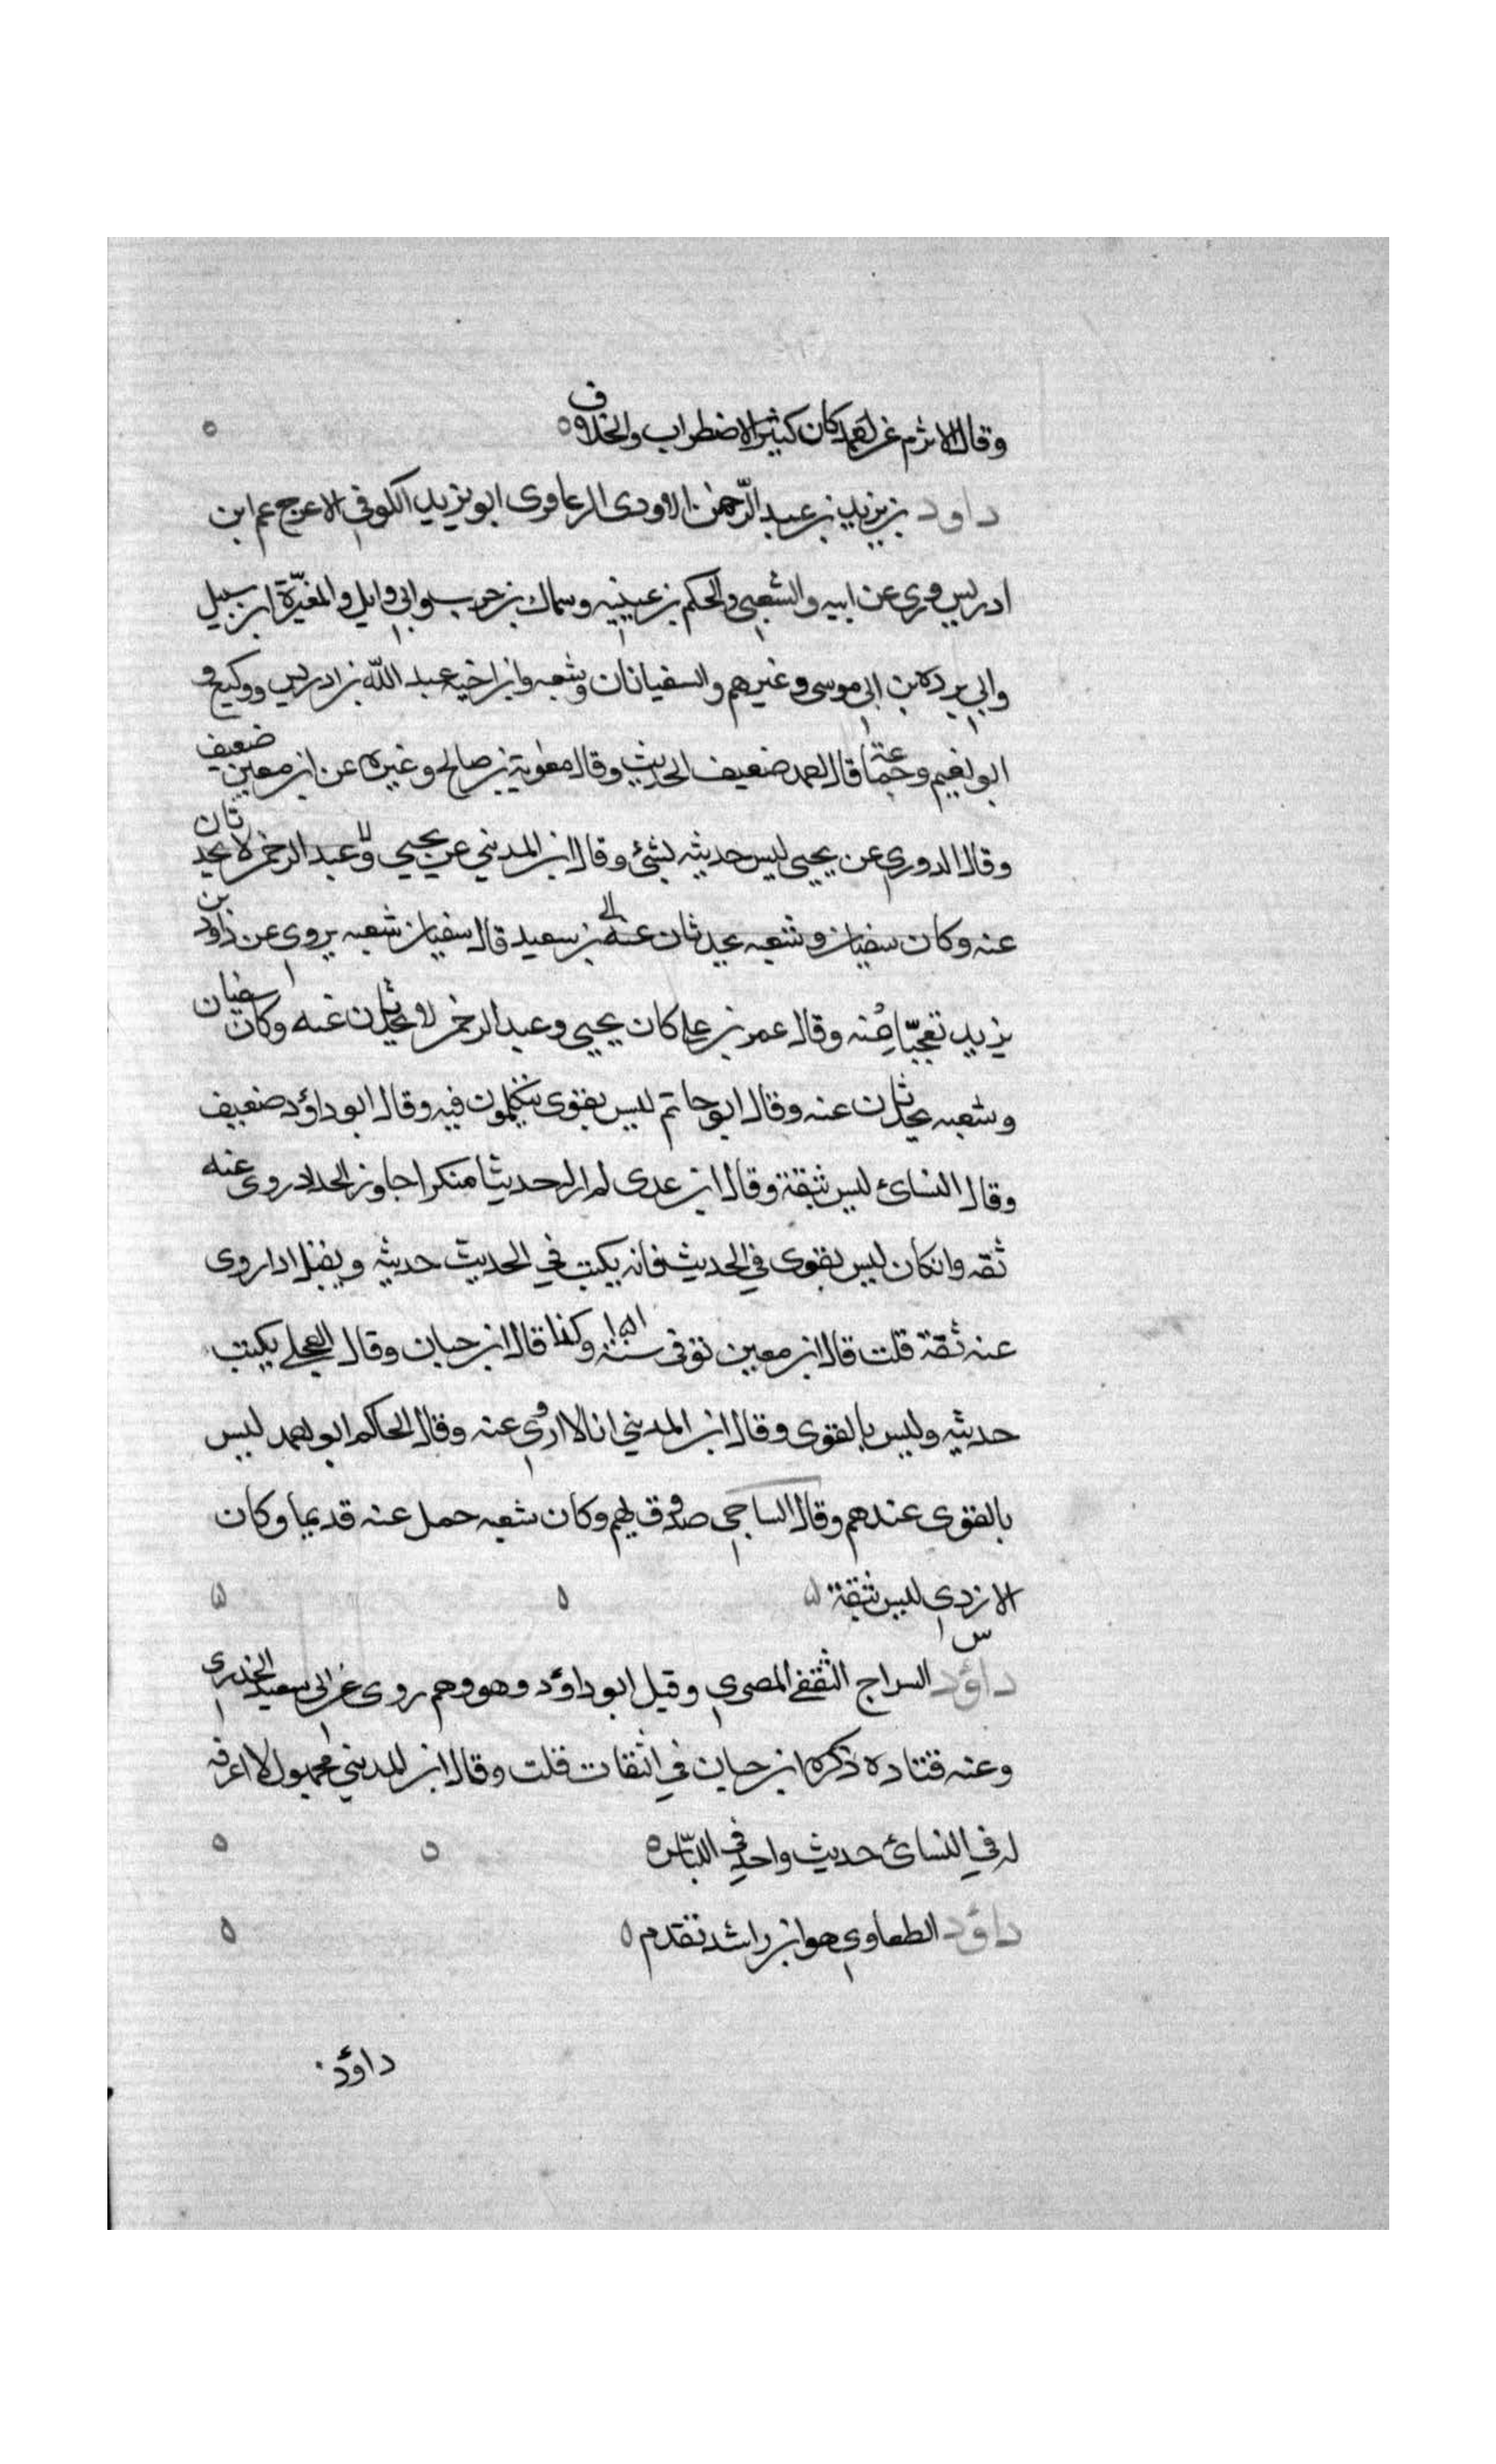 وقال الاثرم عن احمد كان كثير الاضطراب والخلاف
داود بن يزيد بن عبد الرحمن الاودى الزعافرى ابو يزيد الكوفي الاعرج عم ابن
ادريس روى عن ابيه والشعبي والحكم بن عيينه وسماك بن حرب وابي وايل والمغيرة ابن سبيل
وابي برده بن ابي موسى وغيرهم والسفيانان وشعبه وابن اخيه عبد الله بن ادريس ووكيع و
ابو نعيم وجماعة قال احمد ضعيف الحديث وقال معوية بن صالح وغيره عن ابن معين ضعيف
وقال الدوري عن يحيى ليس حديثه بشئ وقال ابن المديني عن يحيي وعبد الرحمن لا يحدثان
عنه وكان سفيان وشعبه يحدثان عنه بن سعيد قال سفيان شعبه يروى عن داود بن
يزيد تعجبا منه وقال عمر بن علي كان يحيي وعبد الرحمن لا يحدثان عنه وكان سفيان
وشعبه يحدثان عنه وقال ابو حاتم ليس بقوى يتكلمون فيه وقال ابو داؤد ضعيف
وقال النسائ ليس بثقة وقال ابن عدى لم ار له حديثا منكرا جاوز الحد اذ روى عنه
ثقه وان كان ليس بقوى في الحديث فانه يكتب في الحديث حديثه ويقبل اذا روى
عنه ثقة قلت قال ابن معين توفى سنة ١٥١ وكذا قال ابن حبان وقال العجلي يكتب
حديثه وليس بالقوى وقال ابن المديني انا لا اروي عنه وقال الحاكم ابو احمد ليس
بالقوى عندهم وقال الساجي صدوق يهم وكان شعبه حمل عنه قديما وكان
الازدي ليس بثقة
س
داؤد السراج الثقفي المصري وقيل ابو داؤد وهو وهم روى عن ابي سعيد الخدرى
وعنه قتاده ذكره ابن حبان في اثقات قلت وقال ابن المديني مجهول لا اعرفه
له في النسائ حديث واحد في اللباس
داؤد الطفاوي هو ابن راشد تقدم
داؤد